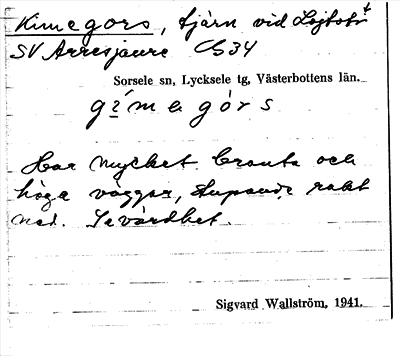 Kimegors, tjärn vid Löjtsto
SV Arresjaure C34
Sorsele sn, Lycksele tg, Västerbottens län.
gi̱ḿegórs
Har mycket branta och
höga väggar, stupande rakt
ned. Sevärdhet.
Sigvard Wallström, 1941.